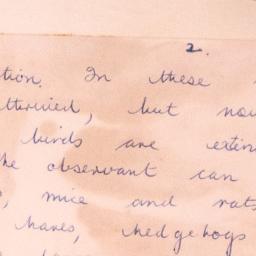 2.
tion. In these
but now
birds are extin
he observant can
, mice and rats
hares, hedgehogs